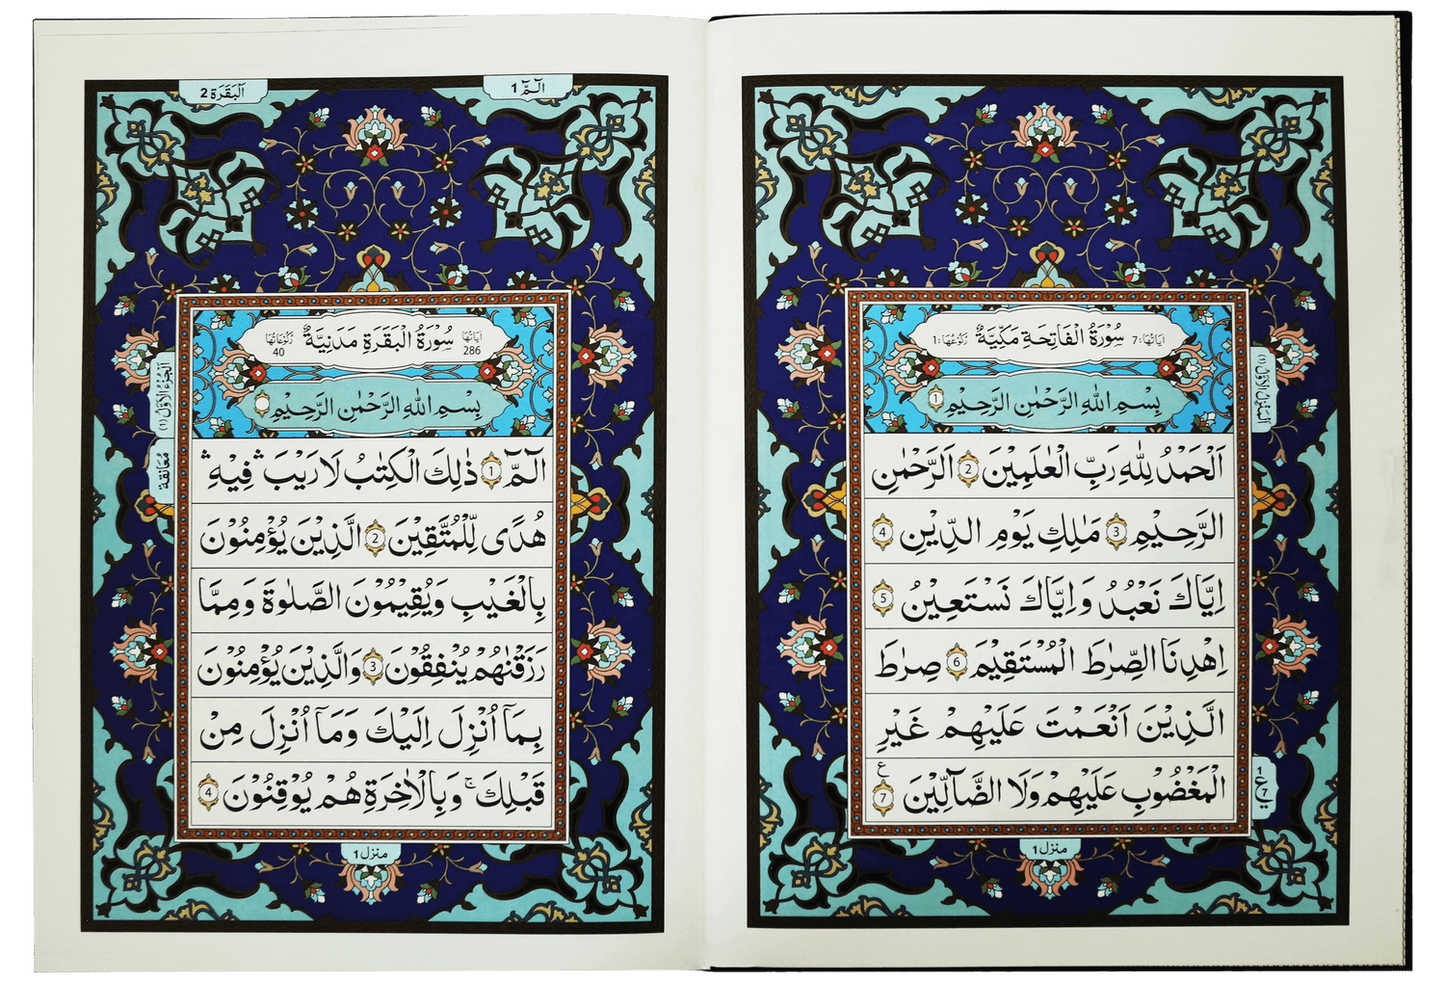 اٰيَاتُهَا: 7 سُوْرَةُ الْفَاتِحَةِ مَكِّيَّةٌ رُكُوْعُهَا: 1
بِسْمِ اللّٰهِ الرَّحْمٰنِ الرَّحِيْمِ 1
اَلْحَمْدُ لِلّٰهِ رَبِّ الْعٰلَمِيْنَ 2 اَلرَّحْمٰنِ
الرَّحِيْمِ 3 مٰلِكِ يَوْمِ الدِّيْنِ 4
اِيَّاكَ نَعْبُدُ وَاِيَّاكَ نَسْتَعِيْنُ 5
اِهْدِنَا الصِّرَاطَ الْمُسْتَقِيْمَ 6 صِرَاطَ
الَّذِيْنَ اَنْعَمْتَ عَلَيْهِمْ غَيْرِ
الْمَغْضُوْبِ عَلَيْهِمْ وَلَا الضَّآلِّيْنَ 7
ع
1
ع
7
منزل 1
الٓمّٓ 1
اَلْبَقَرَة 2
اٰيَاتُهَا 286 سُوْرَةُ الْبَقَرَةِ مَدَنِيَّةٌ رُكُوْعَاتُهَا 40
بِسْمِ اللّٰهِ الرَّحْمٰنِ الرَّحِيْمِ
الٓمّٓ 1 ذٰلِكَ الْكِتٰبُ لَا رَيْبَ ۛ فِيْهِ ۛ
هُدًى لِّلْمُتَّقِيْنَ 2 الَّذِيْنَ يُؤْمِنُوْنَ
بِالْغَيْبِ وَيُقِيْمُوْنَ الصَّلٰوةَ وَمِمَّا
رَزَقْنٰهُمْ يُنْفِقُوْنَ 3 وَالَّذِيْنَ يُؤْمِنُوْنَ
بِمَآ اُنْزِلَ اِلَيْكَ وَمَآ اُنْزِلَ مِنْ
قَبْلِكَ ۚ وَبِالْاٰخِرَةِ هُمْ يُوْقِنُوْنَ 4
اَلْجُزْءُ الْاَوَّلُ (1)
مُعَانَقَة
منزل 1